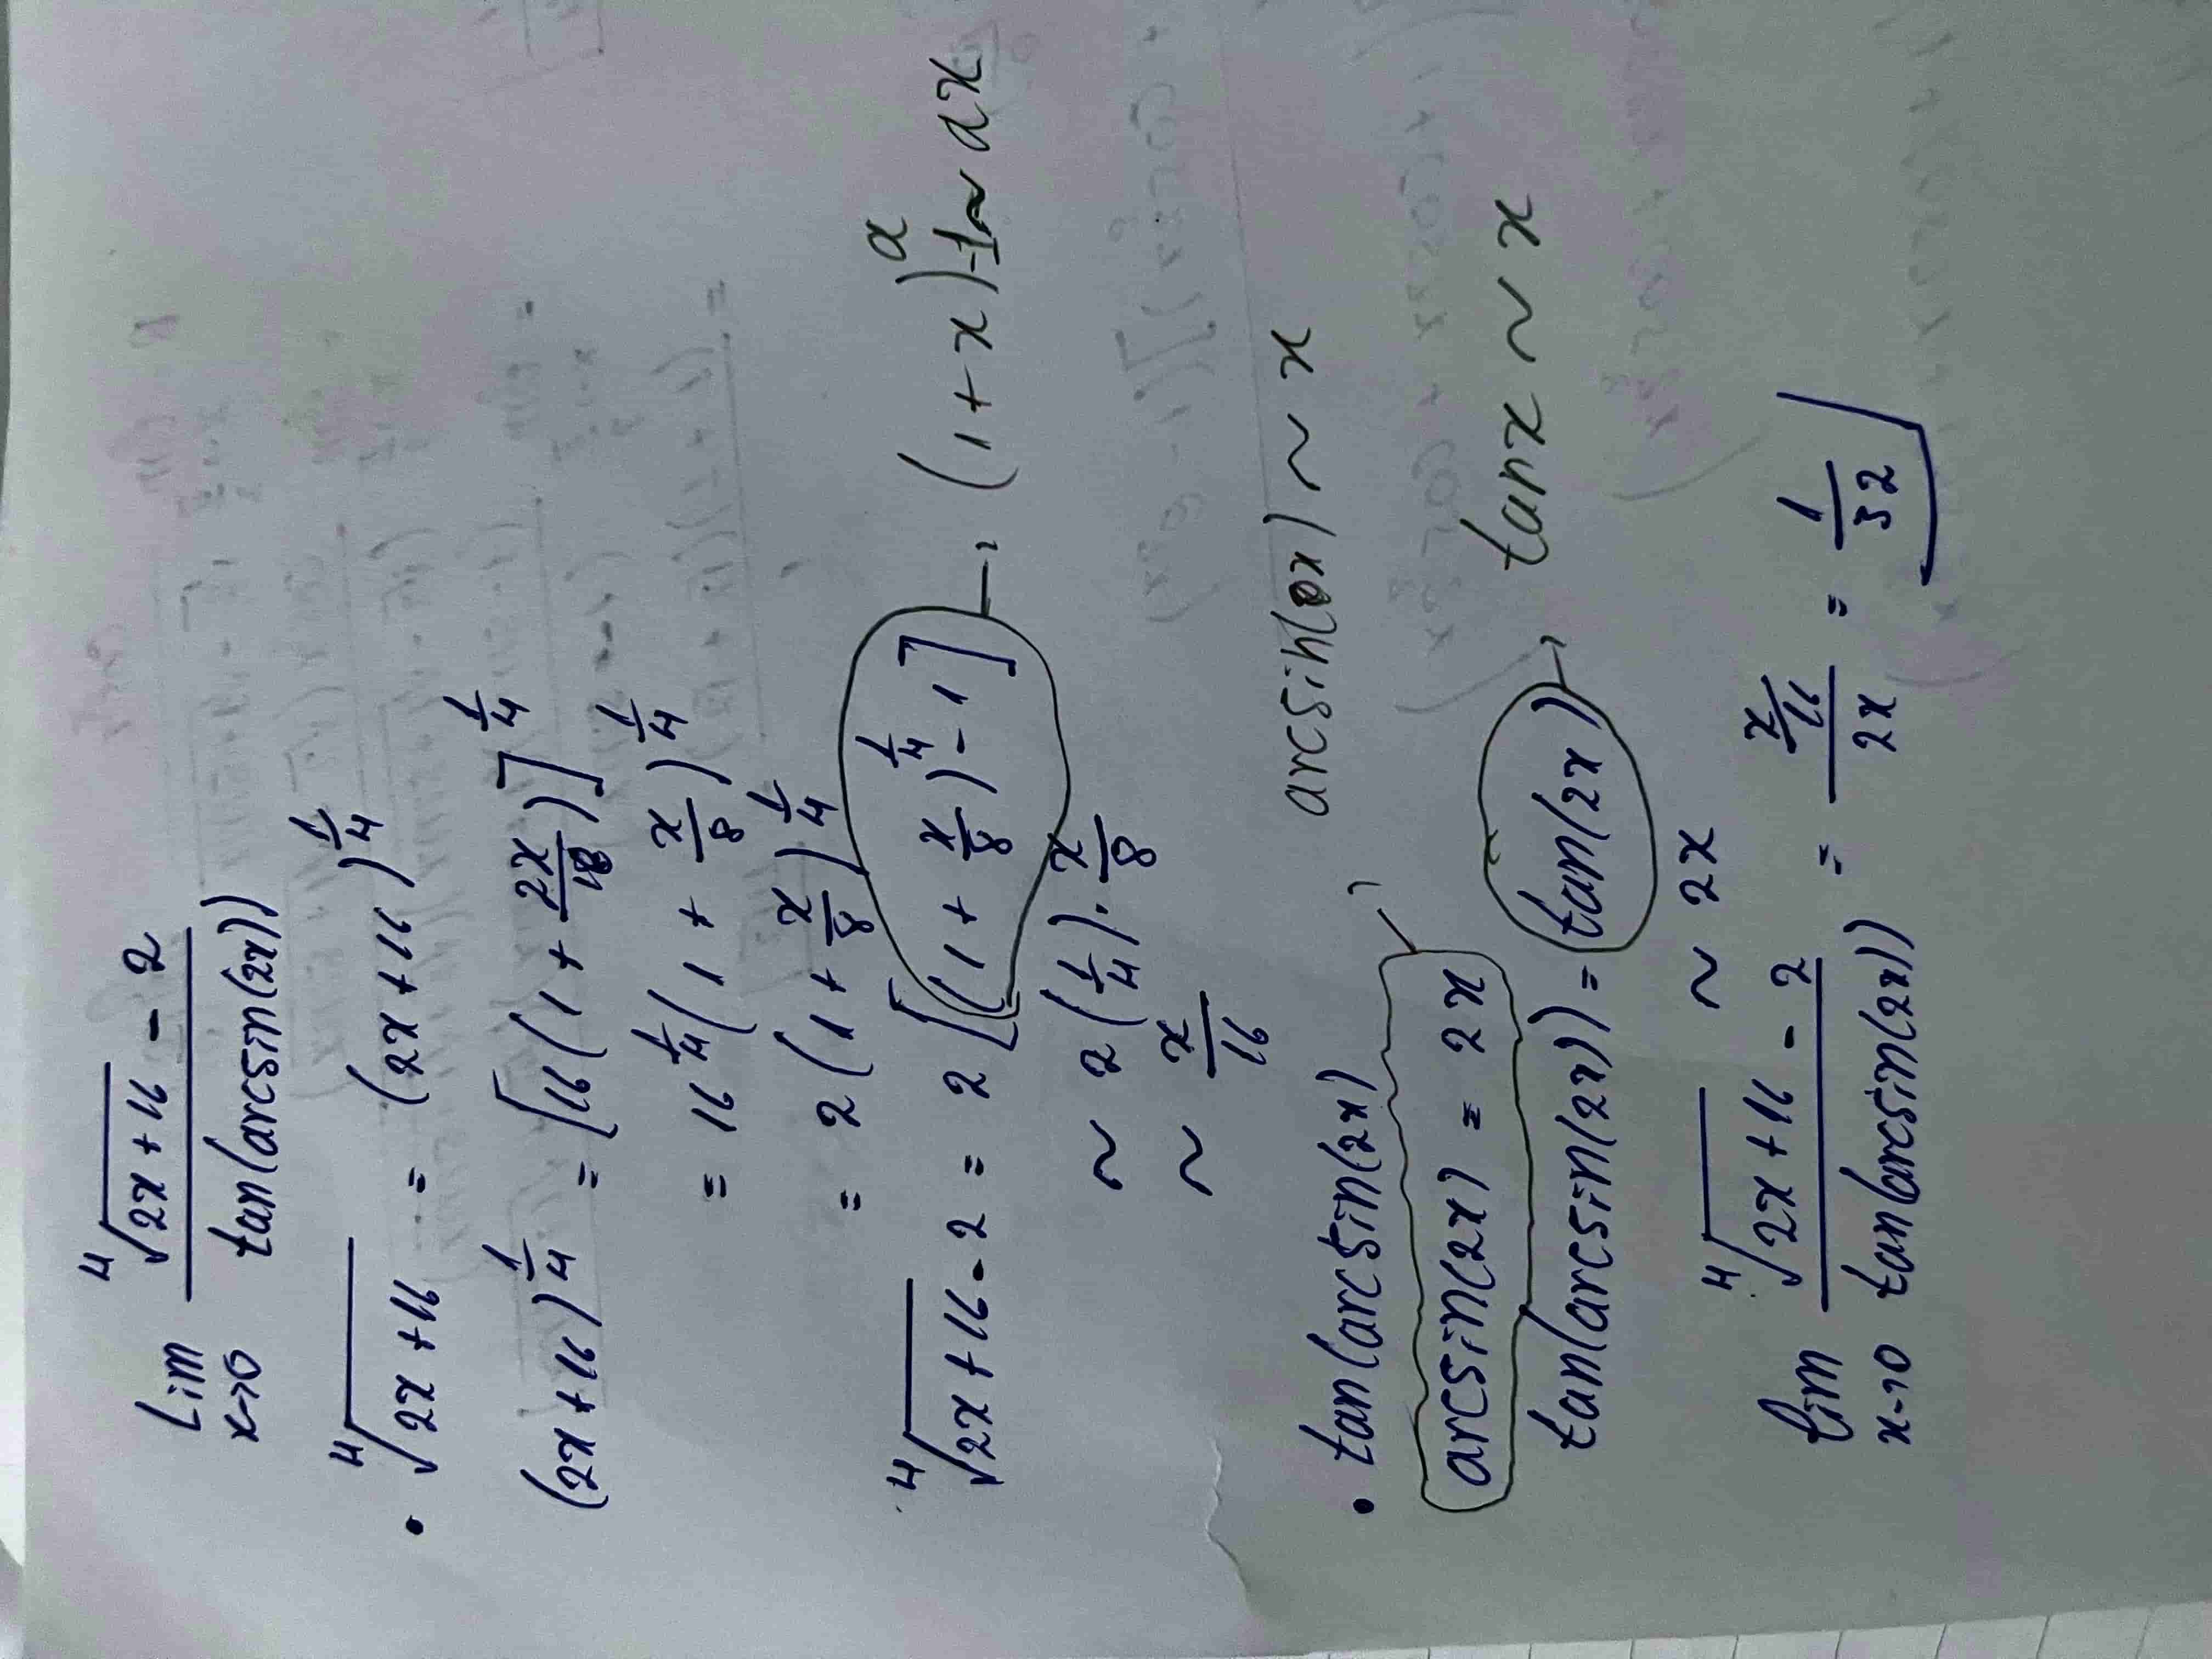 lim x→0 (⁴√(2x+16) - 2) / (tan(arcsin(2x)))
• ⁴√(2x+16) = (2x+16)^(1/4)
(2x+16)^(1/4) = [16(1 + 2x/16)]^(1/4)
= 16^(1/4) (1 + x/8)^(1/4)
= 2(1 + x/8)^(1/4)
⁴√(2x+16) - 2 = 2[(1 + x/8)^(1/4) - 1] → (1+x)^a - 1 ~ ax
~ 2(1/4) · x/8
~ x/16
• tan(arcsin(2x)) arcsin(x) ~ x
arcsin(2x) = 2x
tan(arcsin(2x)) = tan(2x) → tanx ~ x
~ 2x
lim x→0 (⁴√(2x+16) - 2) / (tan(arcsin(2x))) = (x/16) / (2x) = 1/32